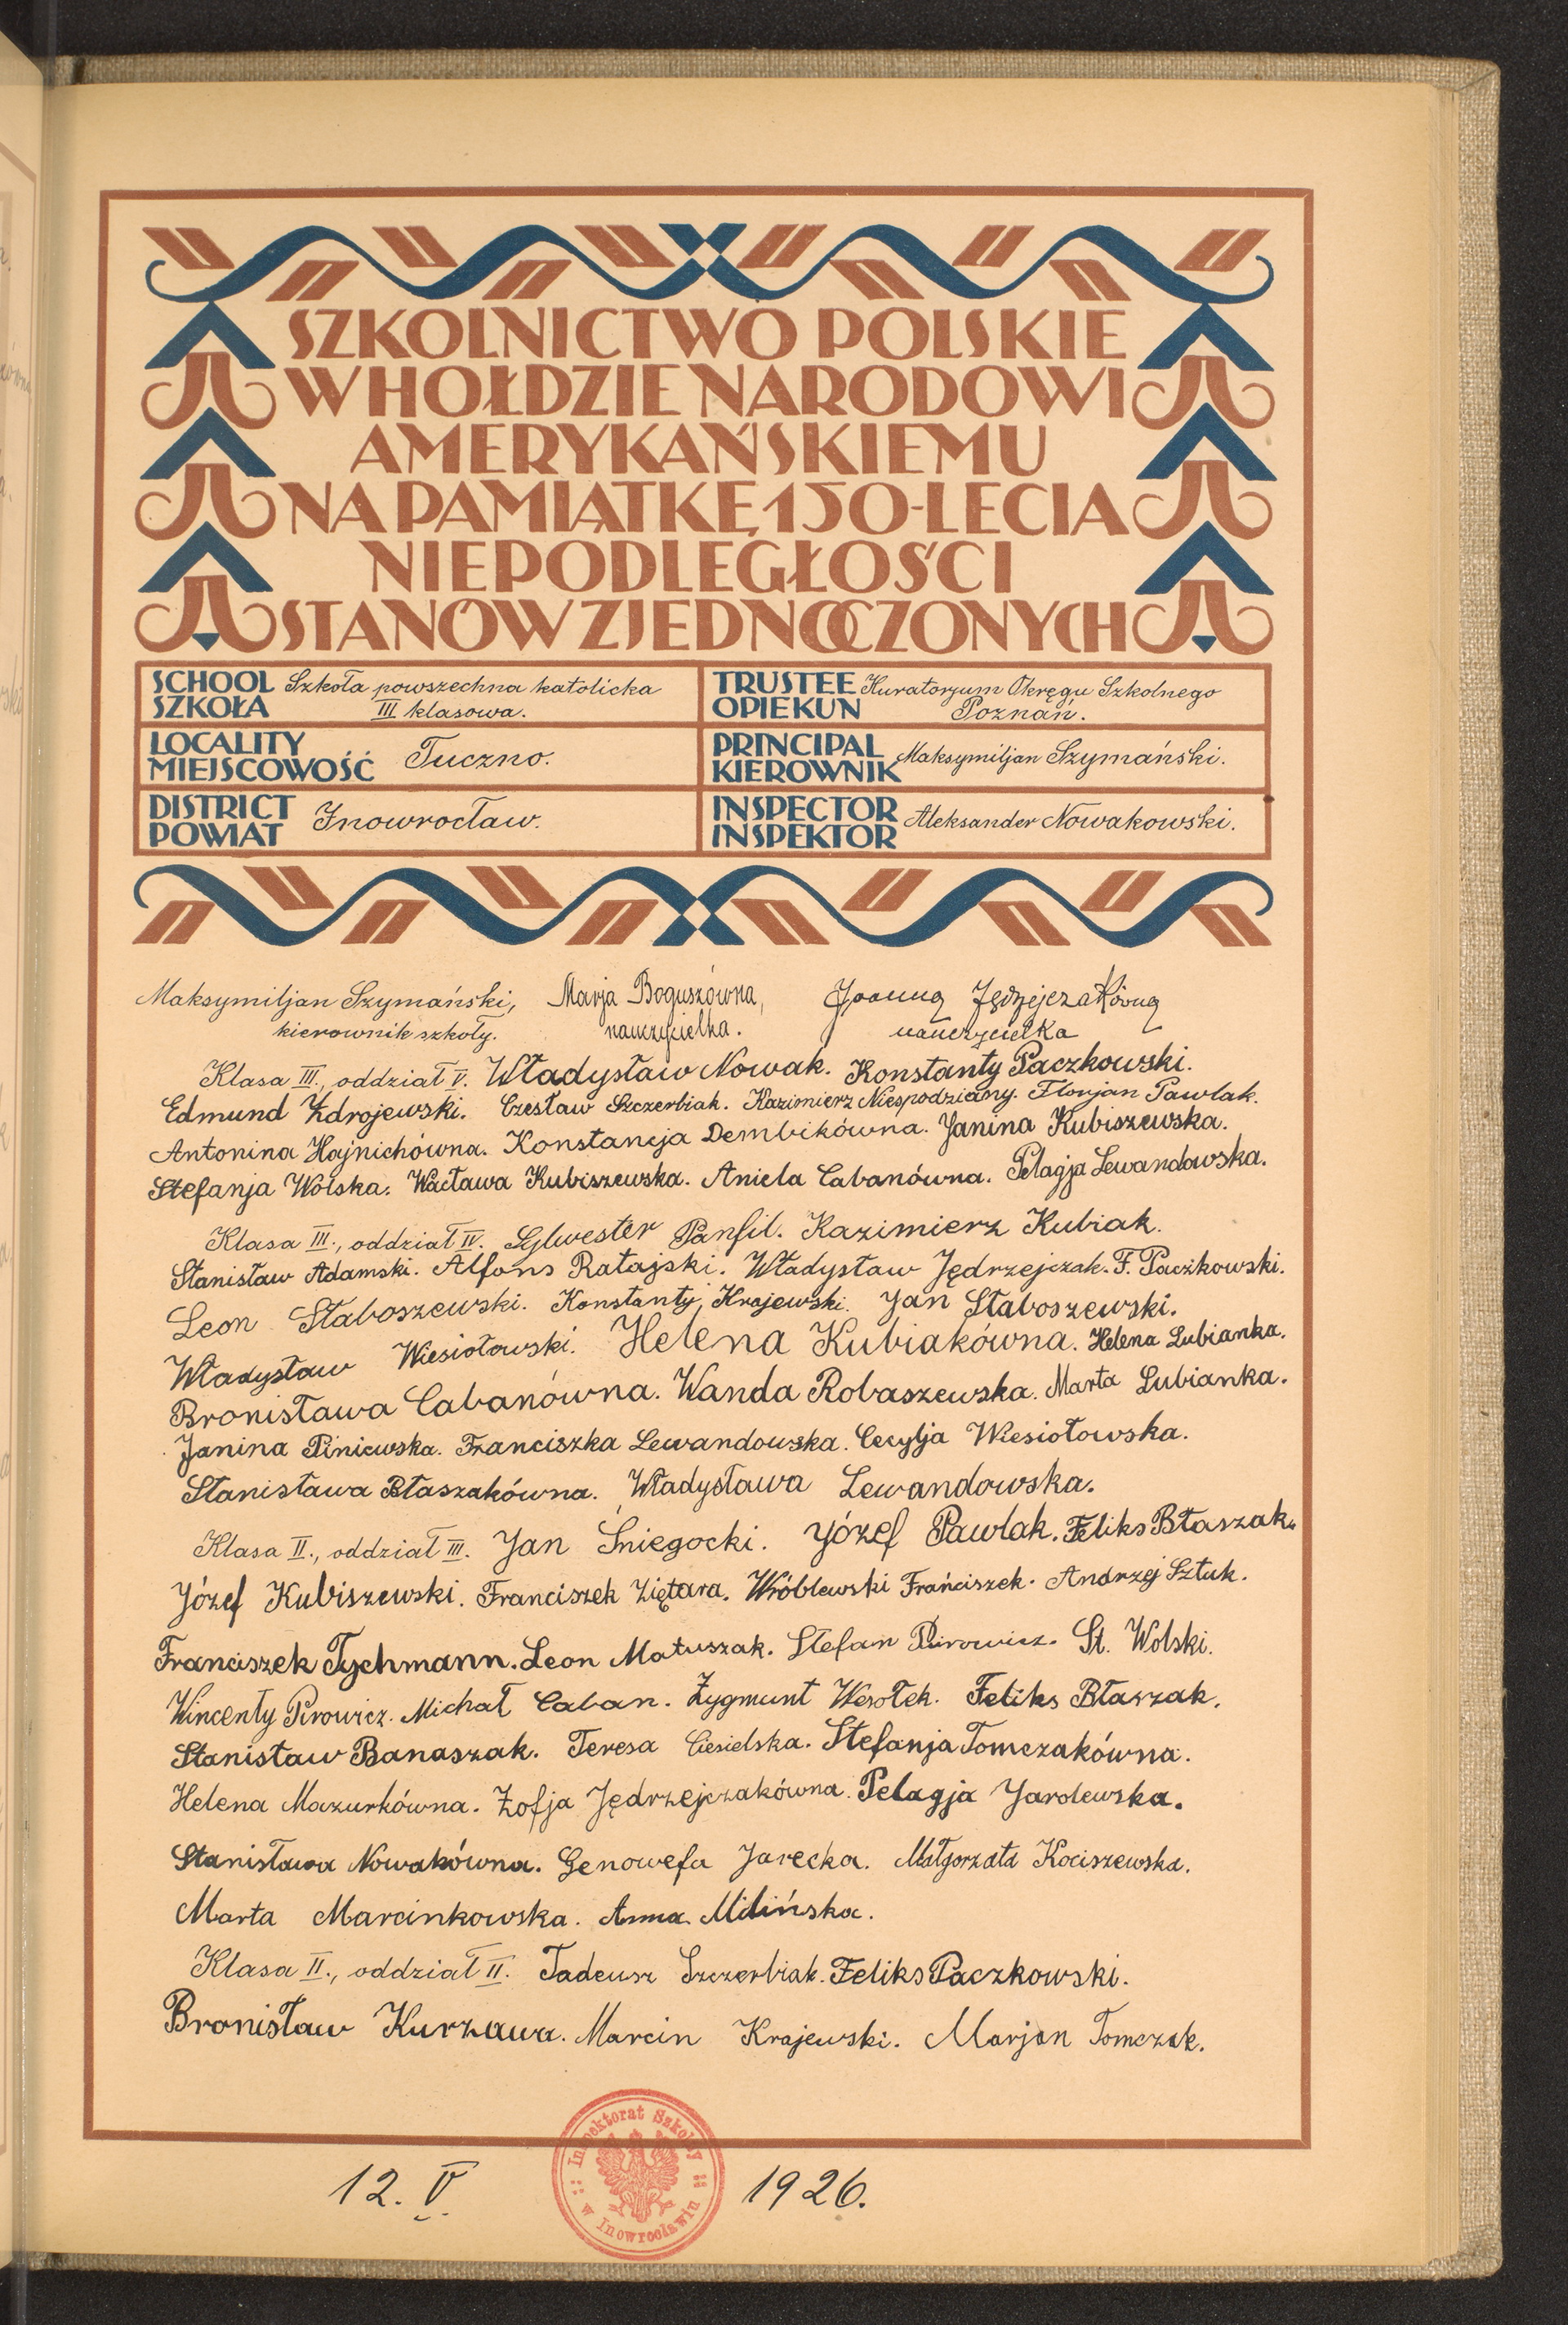 SZKOLNICTWO POLSKIE
W HOŁDZIE NARODOWI
AMERYKAŃSKIEMU
NA PAMIĄTKĘ 150-LECIA
NIEPODLEGŁOŚCI
STANÓW ZJEDNOCZONYCH
SCHOOL Szkoła powszechna katolicka
SZKOŁA III klasowa.
TRUSTEE Kuratorjum Okręgu Szkolnego
OPIEKUN Poznań.
LOCALITY
MIEJSCOWOŚĆ Tuczno.
PRINCIPAL
KIEROWNIK Maksymiljan Szymański.
DISTRICT
POWIAT Inowrocław.
INSPECTOR
INSPEKTOR Aleksander Nowakowski.
Maksymiljan Szymański, Marja Boguszówna, Joanna Jędrzejczakówna
kierownik szkoły. nauczycielka. nauczycielka
Klasa III., oddział V. Władysław Nowak. Konstanty Paczkowski.
Edmund Zdrojewski. Czesław Szczerbiak. Kazimierz Niespodziany. Florjan Pawlak.
Antonina Hajnichówna. Konstancja Dembikówna. Janina Kubiszewska.
Stefanja Wolska. Wacława Kubiszewska. Aniela Cabanówna. Pelagja Lewandowska.
Klasa III., oddział IV. Sylwester Panfil. Kazimierz Kubiak.
Stanisław Adamski. Alfons Ratajski. Władysław Jędrzejczak. F. Paczkowski.
Leon Słaboszewski. Konstanty Krajewski. Jan Słaboszewski.
Władysław Wiesiołowski. Helena Kubiakówna. Helena Lubianka.
Bronisława Cabanówna. Wanda Robaszewska. Marta Lubianka.
Janina Piniewska. Franciszka Lewandowska. Cecylja Wiesiołowska.
Stanisława Błaszakówna. Władysława Lewandowska.
Klasa II., oddział III. Jan Śniegocki. Józef Pawlak. Feliks Błaszak.
Józef Kubiszewski. Franciszek Ziętara. Wróblewski Franciszek. Andrzej Sztuk.
Franciszek Tychmann. Leon Matuszak. Stefan Pirowicz. St. Wolski.
Wincenty Pirowicz. Michał Caban. Zygmunt Wesołek. Feliks Błaszak.
Stanisław Banaszak. Teresa Ciesielska. Stefanja Tomczakówna.
Helena Mazurkówna. Zofja Jędrzejczakówna. Pelagja Jarolewska.
Stanisława Nowakówna. Genowefa Jarecka. Małgorzata Kociszewska.
Marta Marcinkowska. Anna Milińska.
Klasa II., oddział II. Tadeusz Szczerbiak. Feliks Paczkowski.
Bronisław Kurzawa. Marcin Krajewski. Marjan Tomczak.
Inspektorat Szkolny
w Inowrocławiu
12. V. 1926.